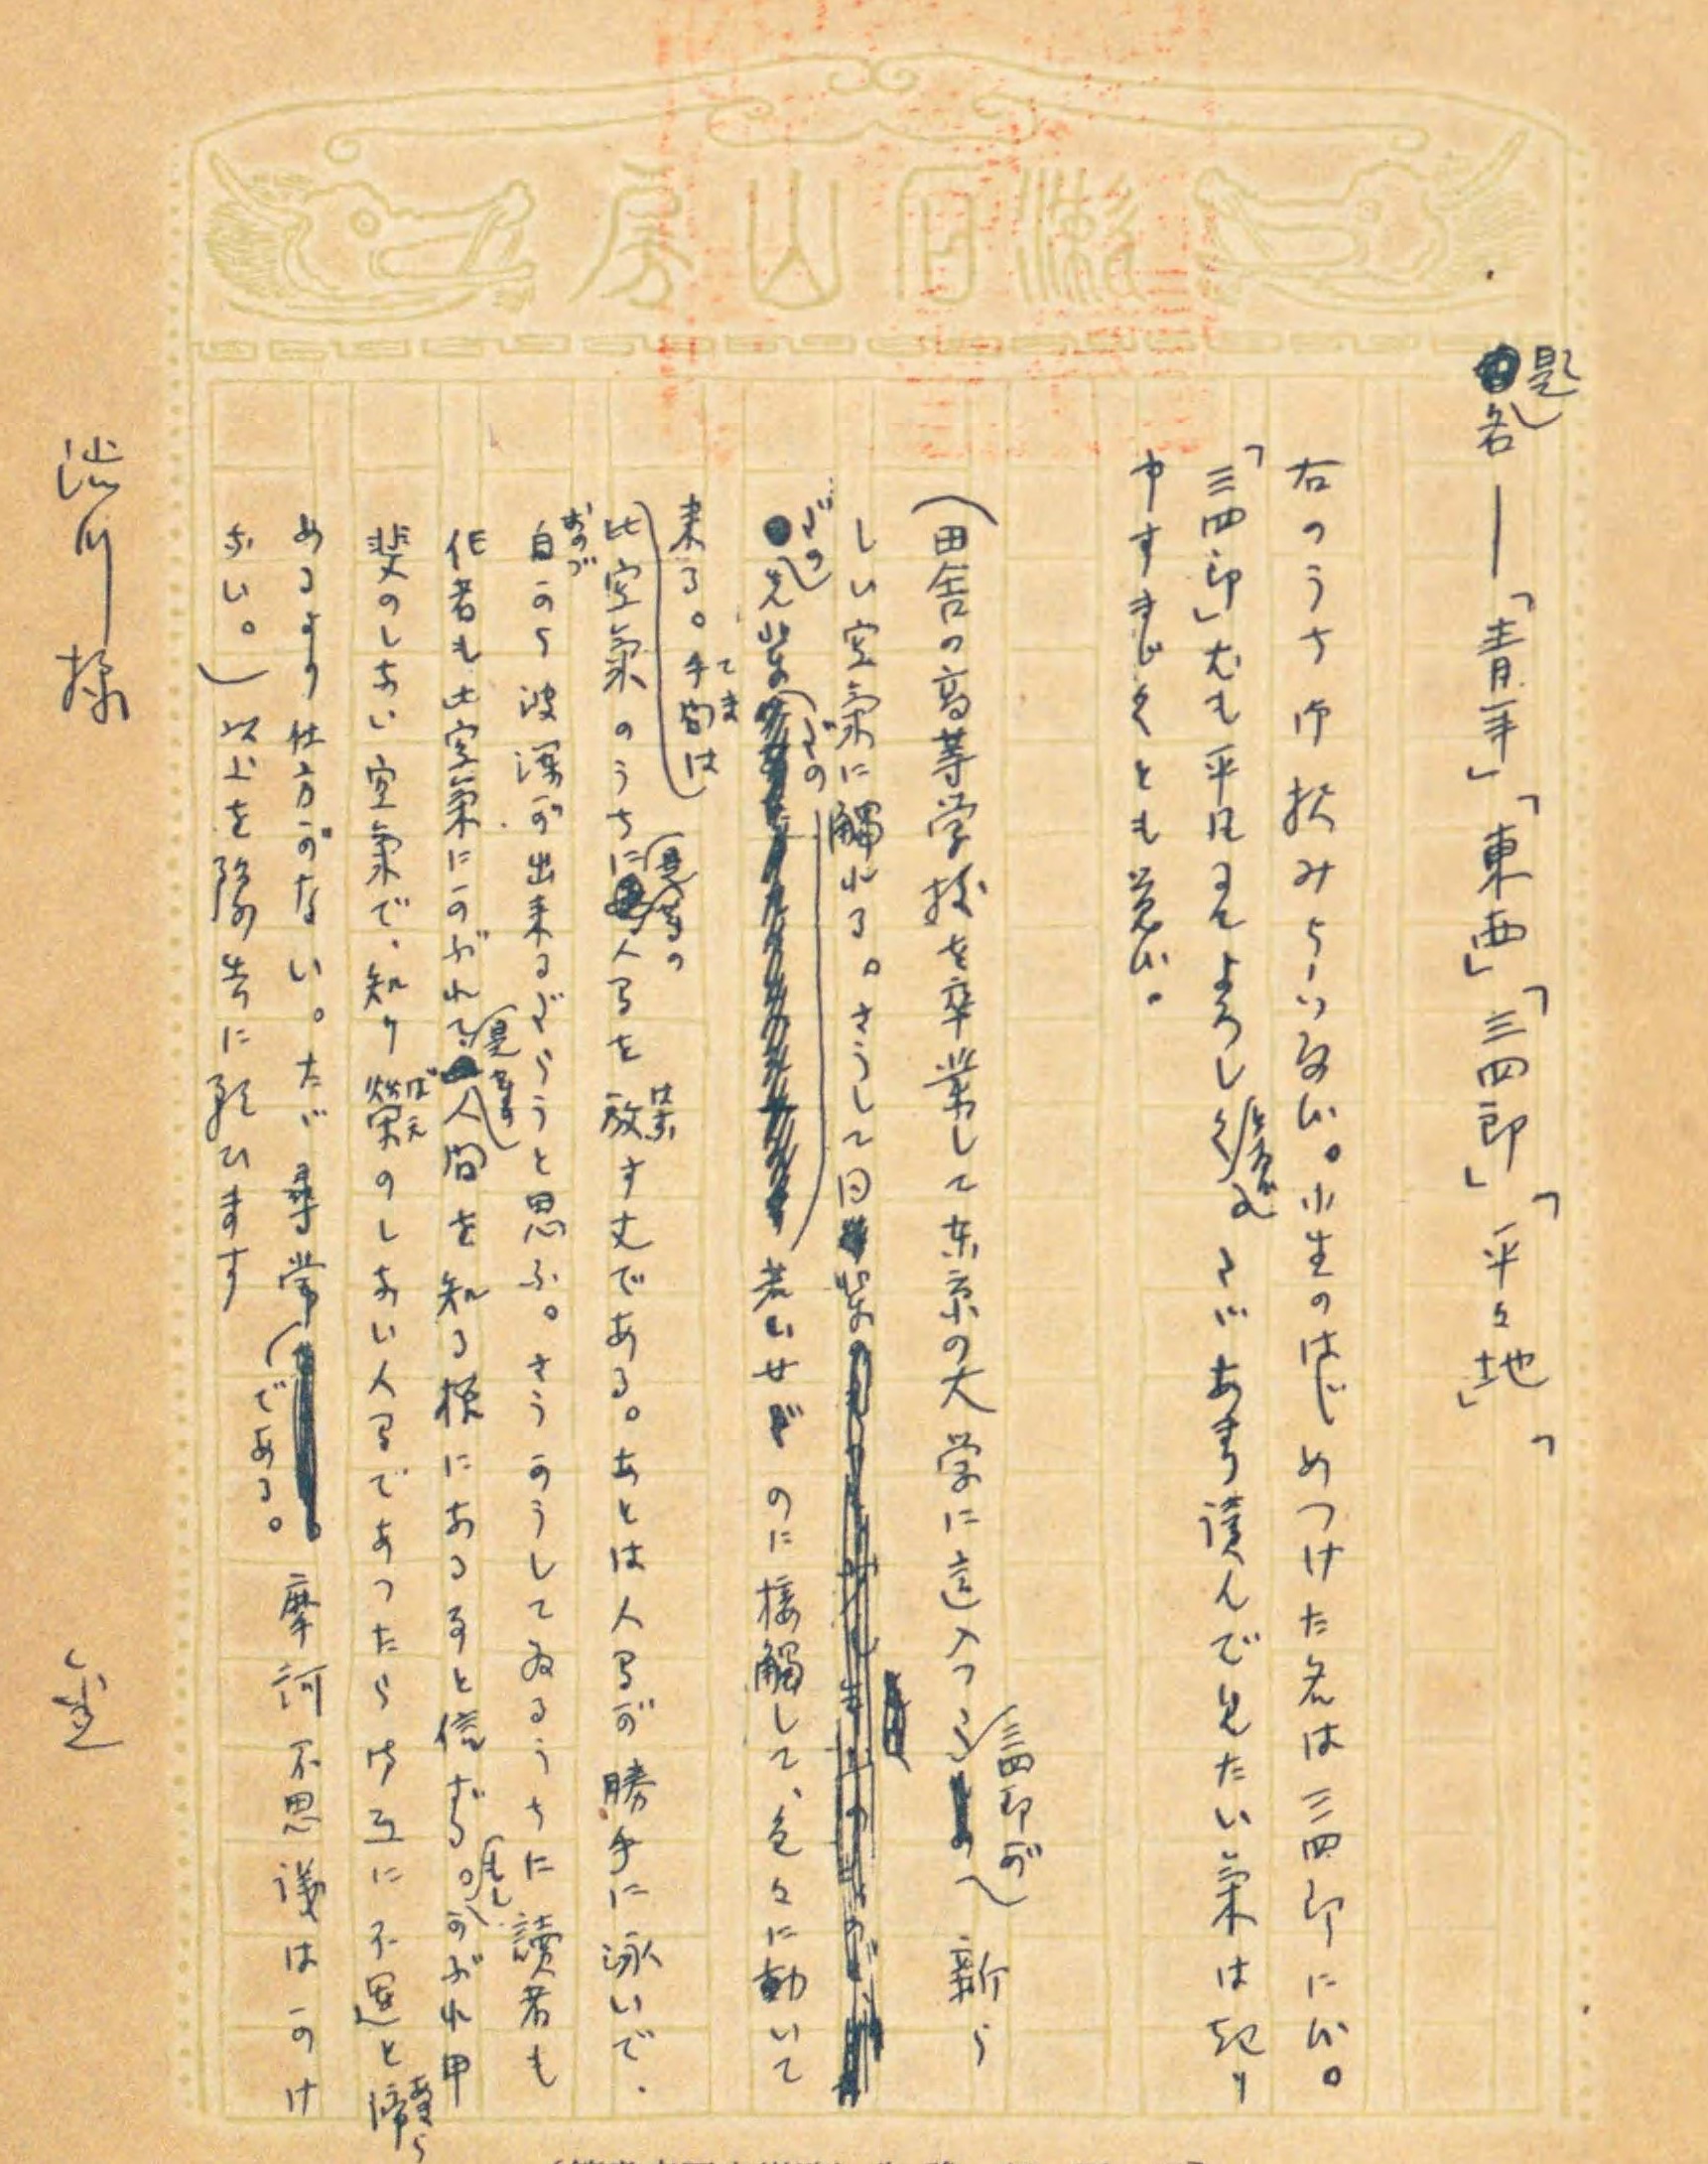 漱石山房
題名―「青年」「東西」「三四郎」「平々地」
右のうち御択みらいない。小生のはじめつけた名は三四郎に候。
「三四郎」尤も平凡にてよろしくと存候。たゞあまり読んで見たい気は起り
申すまじくとも覚候。
(田舎の高等学校を卒業して東京の大学に這入つた三四郎が新ら
しい空気に触れる。さうして同輩だの
先輩だの若い女だのに接触して、色々に動いて
来る。手間は
此空気のうちに是等の人間を放す丈である。あとは人間が勝手に泳いで、
自から波瀾が出来るだらうと思ふ。さうかうしてゐるうちに読者も
作者も此空気にかぶれて是等の人間を知る様になる事と信ずる。もしかぶれ甲
斐のしない空気で、知り栄のしない人間であつたら御互に不運と諦ら
めるより仕方がない。たゞ尋常である。摩訶不思議はかけ
ない。)以上を予告に願ひます
渋川様
金